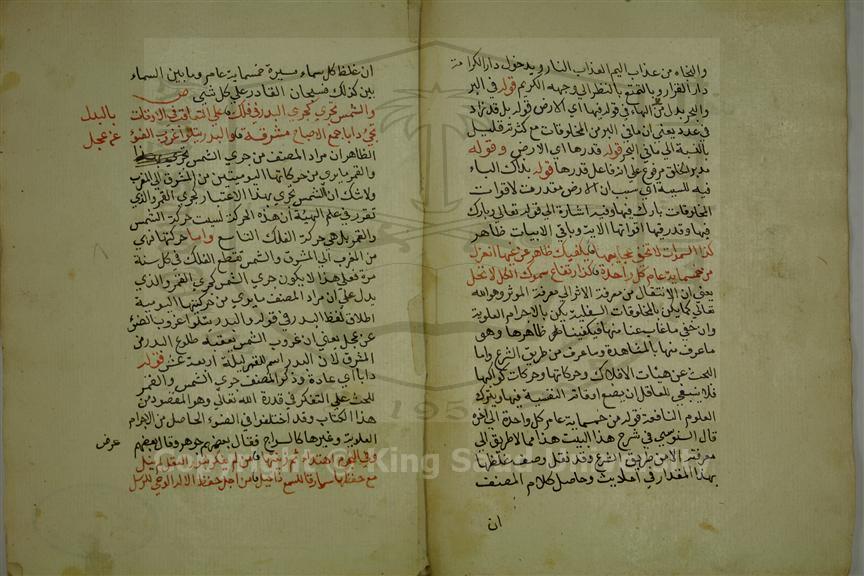 والنجاه من عذاب اليم العذاب النار ويدخوله دار الكرامة
دار القرار وبالتمتع بالنظر الى وجهه الكريم قوله في البر
والبحر بدل من الهاء في قوله فيها أي الارض قوله بل قد زاد
في عدد يعني ان ما في البر من المخلوقات مع كثرته قليل
بالنسبة الى ما في البحر قوله قدرها اي الارض وقوله
مدبر الخلق مرفوع على انه فاعل قدرها قوله بذلك الباء
فيه للسببية اي بسبب ان الارض مقدرة لاقوات
المخلوقات بارك فيها وفيه اشارة الى قوله تعالى وبارك
فيها وقدر فيها اقواتها الاية وباقي الابيات ظاهر
كذا السموات لا تحصى عجايبها يكفيك ظاهر عن غيبها انعزل
من خمسماية عام كل واحدة كذا ارتفاع سموك الكل لا تحل
يعني ان الانتقال من معرفة الاثر الى معرفة الموثر وهو الله
تعالى كما يكون بالمخلوقات السفلية يكون بالاجرام العلوية
وان خفي ما غاب عنا منها فيكفينا ظاهرها وهو
ما عرف منها بالمشاهدة وما عرف من طريق الشرع واما
البحث عن هيئات الافلاك وحركاتها وحركات كواكبها
فلا ينبغي للعاقل ان يضيع اوقاته النفيسة فيها ويترك
العلوم النافعة قوله من خمسماية عام كل واحدة الى اخره
قال السنوسي في شرح هذا البيت هذا مما لا طريق الى
معرفته الا من طريق الشرع وقد نقل وصف غلظها
بهذا المقدار في احاديث وحاصل كلام المصنف
ان
ان غلظ كل سماء مسيرة خمسماية عام وما بين السماء
بين كذلك فسبحان القادر على كل شي ص
والشمس تجري كجري البدر في فلك على التعاقب في الاوقات بالبدل
تجي دابا هم الاصباح مشرقة والبدر يتلو اغرب الضوء عن عجل
الظاهر ان مراد المصنف من جري الشمس
والقمر ما يري من حركاتهما اليوميتين من المشرق الى المغرب
ولا شك ان الشمس تجري بهذا الاعتبار كجري القمر والذي
تقرر في علم الهيئة ان هذه الحركة ليست حركة الشمس
والقمر بل هي حركة الفلك التاسع واما حركتها فهي
من المغرب الى المشرق والشمس تقطع الفلك في كل سنة
مرة فعلى هذا لا يكون جري الشمس كجري القمر والذي
يدل على ان مراد المصنف ما يري من حركتهما اليومية
اطلاق لفظ البدر في قوله والبدر يتلو اغروب الضوء
عن عجل يعني ان غروب الشمس يعقبه طلوع البدر من
المشرق لان البدر اسم للقمر ليلة اربعة عشر قوله
دابا اي عادة وذكر المصنف جري الشمس والقمر
للحث على التفكر في قدرة الله تعالى وهو المقصود من
هذا الكتاب وقد اختلفوا في الضوء الحاصل من الاجرام
العلوية وغيرها كالسراج فقال بعضهم جوهر وقال بعضهم عرض
وفي النجوم اهتداء ثم زينتها
مع حفظها سمارقا للسمع من اجل حفظ الاله الوحي للرسل